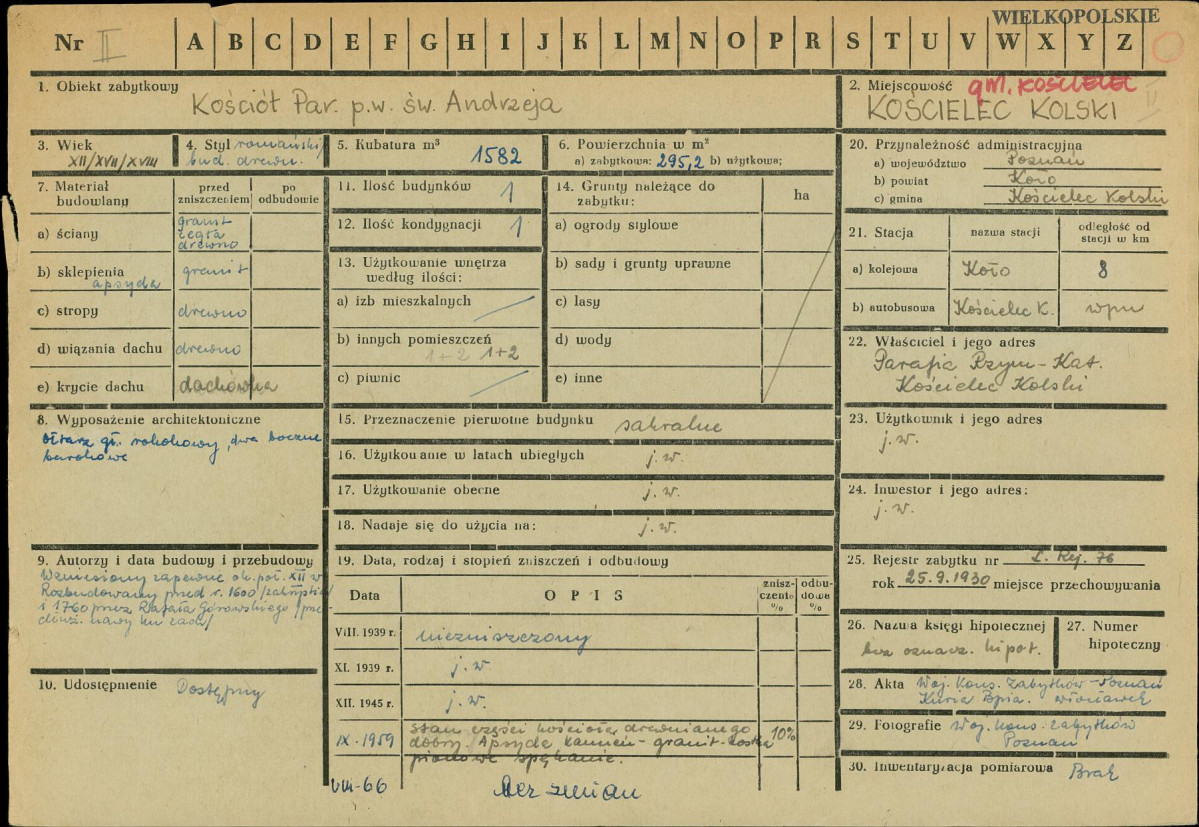 WIELKOPOLSKIE
Nr II A B C D E F G H I J K L M N O P R S T U V W X Y Z
1. Obiekt zabytkowy
Kościół Par. p.w. św. Andrzeja
2. Miejscowość gm. KOŚCIELEC
KOŚCIELEC KOLSKI
II
3. Wiek
XII/XVII/XVIII
4. Styl romański/
bud. drewn.
5. Kubatura m³
1582
6. Powierzchnia w m²
a) zabytkowa: 295,2 b) użytkowa;
7. Materiał budowlany
przed zniszczeniem
po odbudowie
a) ściany
granit
cegła
drewno
b) sklepienia
apsyda
granit
c) stropy
drewno
d) wiązania dachu
drewno
e) krycie dachu
dachówka
8. Wyposażenie architektoniczne
ołtarz gł. rokokowy, dwa boczne
barokowe
9. Autorzy i data budowy i przebudowy
Wzniesiony zapewne ok. poł. XII w
Rozbudowany przed r. 1600 /zakrystia/
i 1760 przez Rafała Górowskiego /prze
dłuż. nawy ku zach/
10. Udostępnienie Dostępny
11. Ilość budynków 1
12. Ilość kondygnacji 1
13. Użytkowanie wnętrza
według ilości:
a) izb mieszkalnych
b) innych pomieszczeń
1+2 1+2
c) piwnic
14. Grunty należące do
zabytku:
ha
a) ogrody stylowe
b) sady i grunty uprawne
c) lasy
d) wody
e) inne
15. Przeznaczenie pierwotne budynku sakralne
16. Użytkowanie w latach ubiegłych j. w.
17. Użytkowanie obecne j. w.
18. Nadaje się do użycia na: j. w.
19. Data, rodzaj i stopień zniszczeń i odbudowy
Data
OPIS
znisz-
czenie
%
odbu-
dowa
%
VIII. 1939 r. niezniszczony
XI. 1939 r. j. w
XII. 1945 r. j. w.
IX - 1959
Stan części kościoła drewnianego
dobry. Apsyda kamień-granit-kostka
pionowe spękanie.
10%
VIII-66 bez zmian
20. Przynależność administracyjna
a) województwo Poznań
b) powiat Koło
c) gmina Kościelec Kolski
21. Stacja
nazwa stacji
odległość od
stacji w km
a) kolejowa Koło 8
b) autobusowa Kościelec K.
22. Właściciel i jego adres
Parafia Rzym-Kat.
Kościelec Kolski
23. Użytkownik i jego adres
j. w.
24. Inwestor i jego adres:
j. w.
25. Rejestr zabytku nr L. Rej. 76
rok 25.9.1930 miejsce przechowywania
26. Nazwa księgi hipotecznej
bez oznacz. hipot.
27. Numer
hipoteczny
28. Akta Woj. Kons. Zabytków - Poznań
Kuria Bpia. Włocławek
29. Fotografie Woj. Kons. Zabytków
Poznań
30. Inwentaryzacja pomiarowa Brak